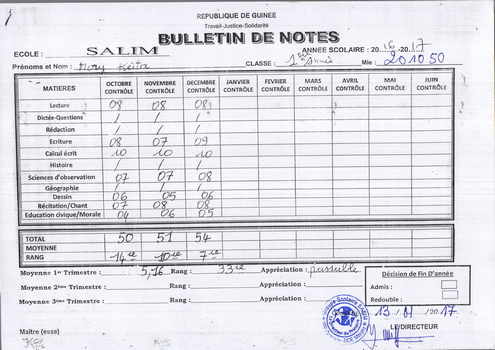 REPUBLIQUE DE GUINEE
Travail-Justice-Solidarité
BULLETIN DE NOTES
ECOLE : SALIM ANNEE SCOLAIRE : 2016 -2017
Prénoms et Nom : Mory Keita CLASSE : 1ère Année Mle : 201050
MATIERES OCTOBRE CONTRÔLE NOVEMBRE CONTRÔLE DECEMBRE CONTRÔLE JANVIER CONTRÔLE FEVRIER CONTRÔLE MARS CONTRÔLE AVRIL CONTRÔLE MAI CONTRÔLE JUIN CONTRÔLE
Lecture 08 08 08
Dictée-Questions / / /
Rédaction / / /
Ecriture 08 07 09
Calcul écrit 10 10 10
Histoire / / /
Sciences d'observation 07 07 08
Géographie / / /
Dessin 06 05 06
Récitation/Chant 07 08 08
Education civique/Morale 04 06 05
TOTAL 50 51 54
MOYENNE
RANG 14e 10e 7e
Moyenne 1er Trimestre : 5,16 Rang : 33e Appréciation : passable
Moyenne 2ème Trimestre : Rang : Appréciation :
Moyenne 3ème Trimestre : Rang : Appréciation :
Décision de Fin D'année
Admis :
Redouble :
13 / 01 / 2017
Maître (esse)
LE DIRECTEUR